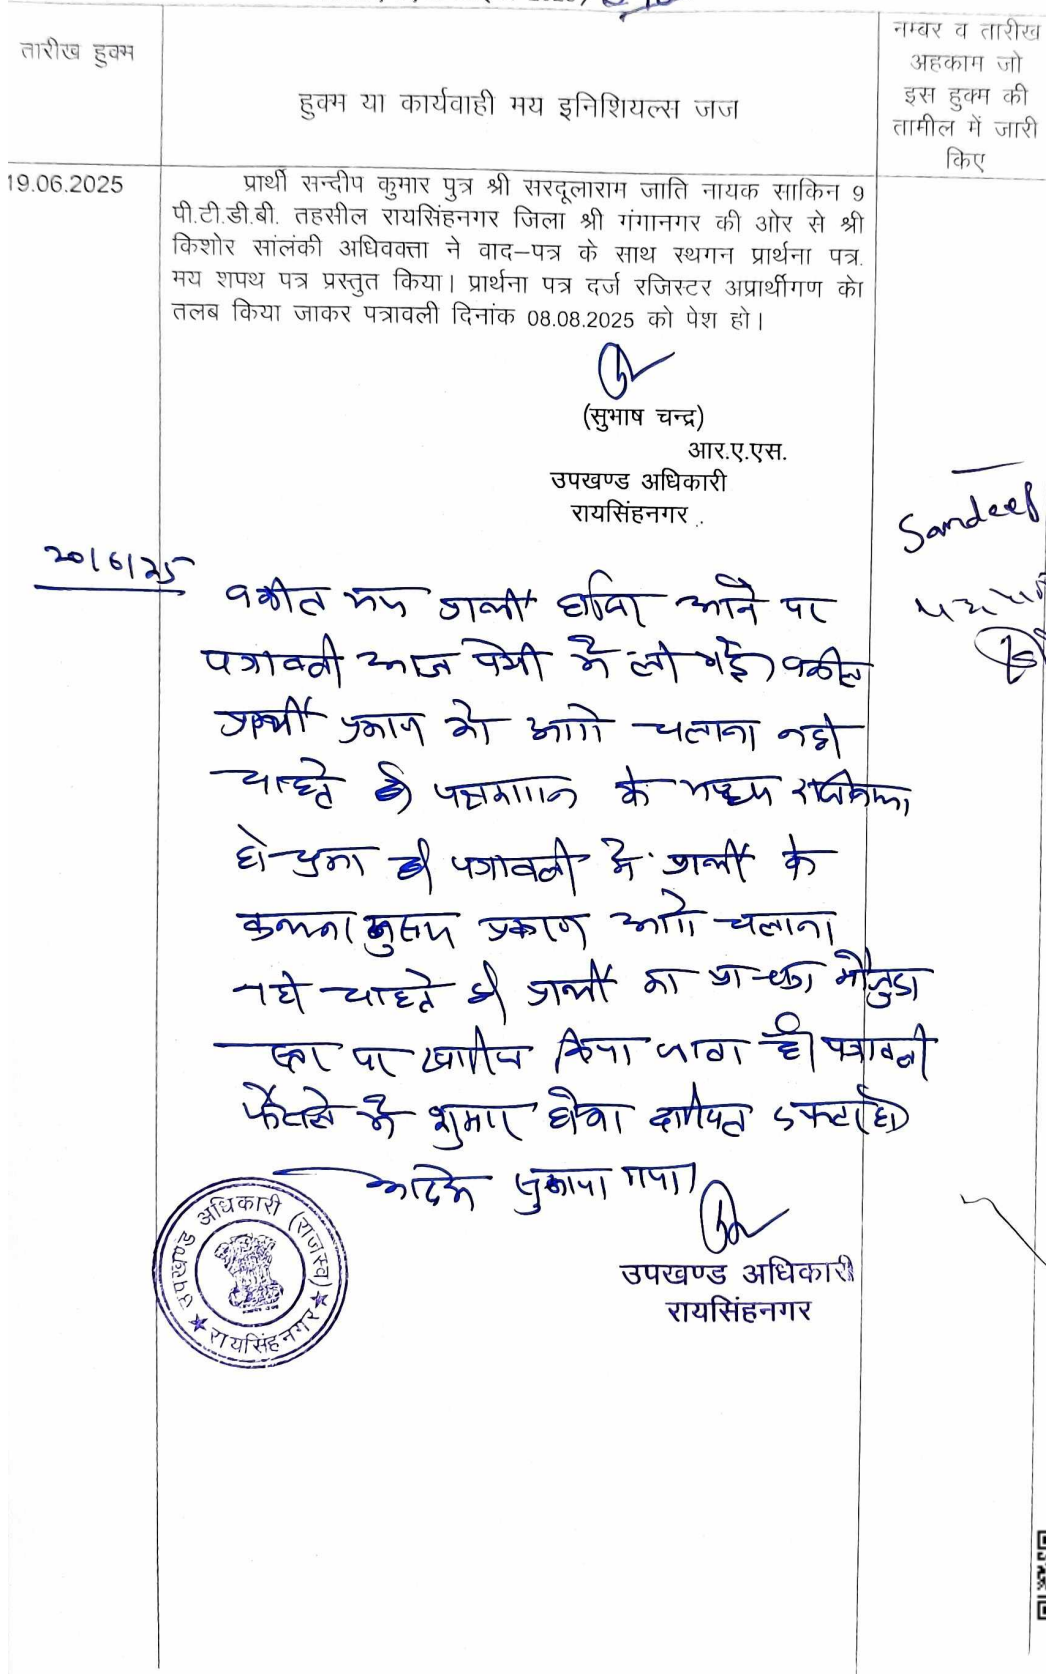 तारीख हुक्म
हुक्म या कार्यवाही मय इनिशियल्स जज
नम्बर व तारीख
अहकाम जो
इस हुक्म की
तामील में जारी
किए
19.06.2025
प्रार्थी सन्दीप कुमार पुत्र श्री सरदूलाराम जाति नायक साकिन 9
पी.टी.डी.बी. तहसील रायसिंहनगर जिला श्री गंगानगर की ओर से श्री
किशोर सांलंकी अधिवक्ता ने वाद–पत्र के साथ स्थगन प्रार्थना पत्र.
मय शपथ पत्र प्रस्तुत किया। प्रार्थना पत्र दर्ज रजिस्टर अप्रार्थीगण केा
तलब किया जाकर पत्रावली दिनांक 08.08.2025 को पेश हो।
(सुभाष चन्द्र)
आर.ए.एस.
उपखण्ड अधिकारी
रायसिंहनगर
Sandeep
20/6/25
वकील मय प्रार्थी हाजिर आने पर
पत्रावली आज पेशी में ली गई। वकील
प्रार्थी प्रकरण को आगे चलाना नहीं
चाहते है। पक्षकारान के मध्य राजीनामा
हो चुका है। पत्रावली में प्रार्थी के
प्रकरण आगे चलाना
नही चाहते है। प्रार्थी का प्रा. पत्र मौजुदा
स्तर पर खारीज किया जाता है। पत्रावली
फैसले में शुमार होकर दाखिल दफ्तर हो।
आदेश सुनाया गया।
उपखण्ड अधिकारी
रायसिंहनगर
उपखण्ड अधिकारी (राजस्व)
रायसिंहनगर